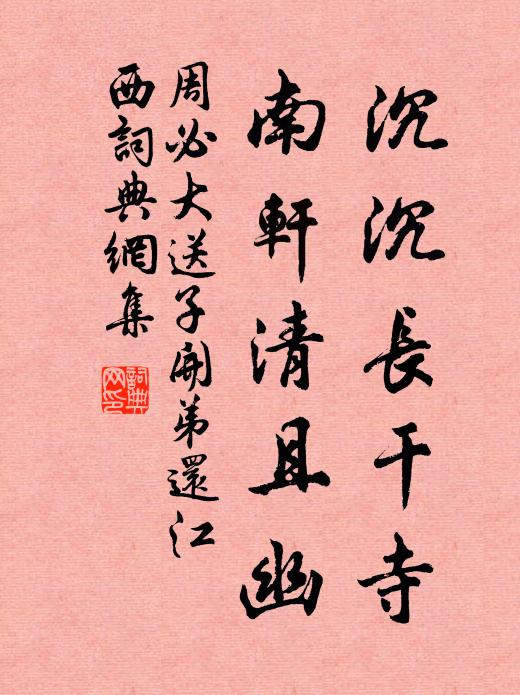 沉沉長干寺
南軒清且幽
周必大送子開弟還江
西詞典網集
詞典網印